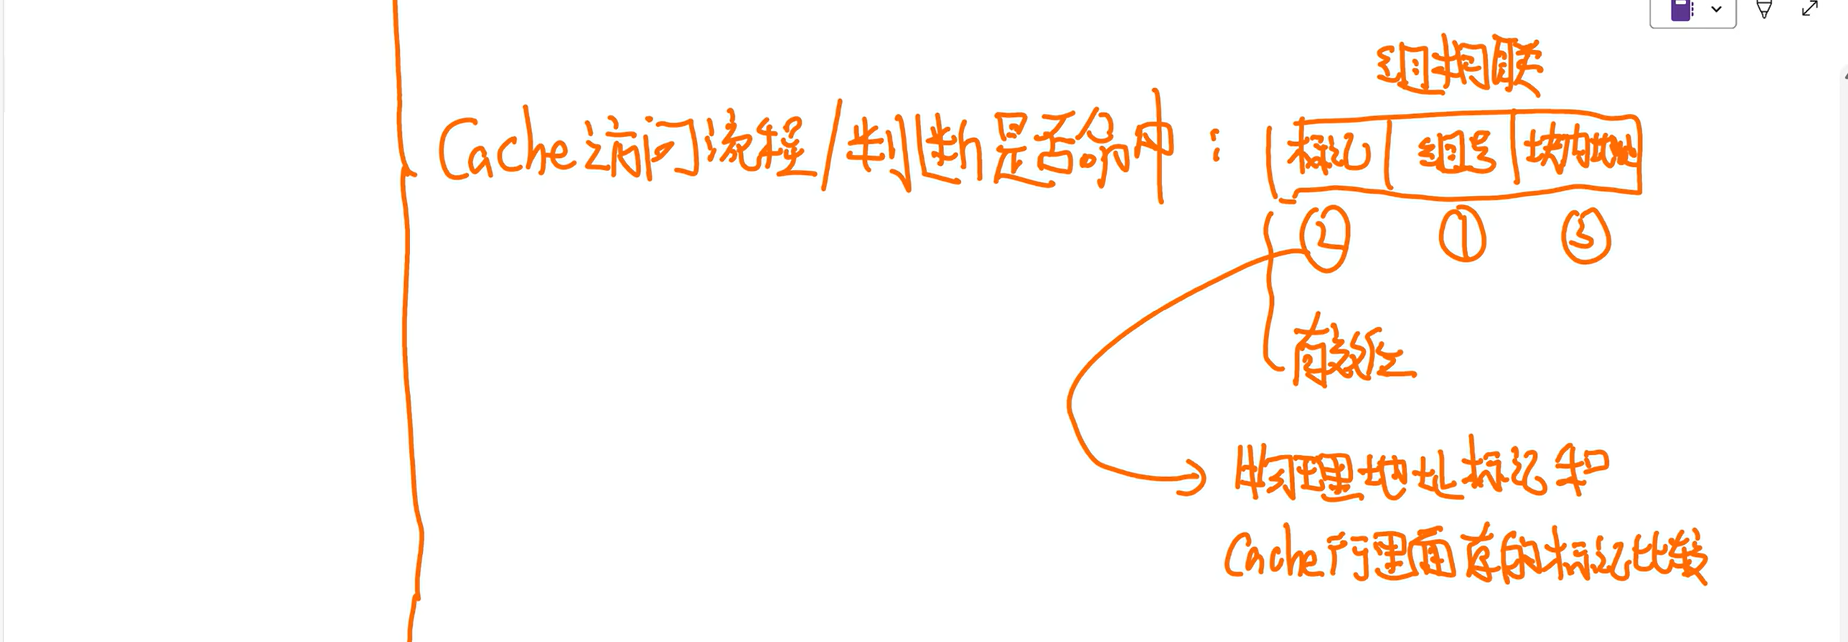 组相联
Cache访问流程/判断是否命中：
标记 组号 块内地址
② ① ③
有效位
物理地址标记和
Cache行里面存的标记比较